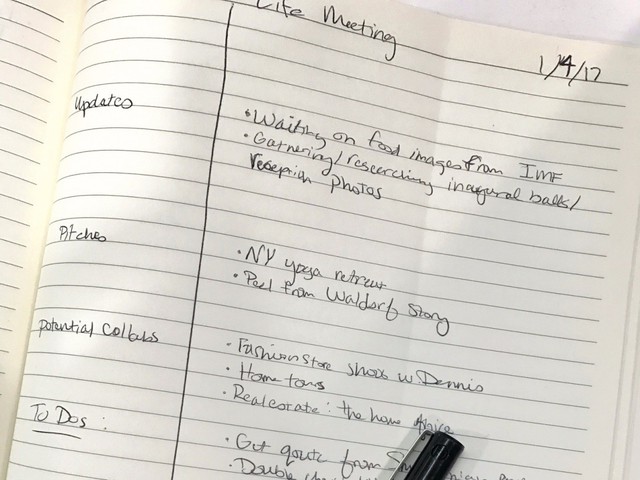 Life Meeting
1/4/17
Updates
• Waiting on food images from IMF
• Gathering/researching inaugural balls/
reception photos
Pitches
• NY yoga retreat
• Pool from Waldorf Story
Potential Collabs
• Fashion store shoot w Dennis
• Home tours
• Real estate: the home
To Dos:
• Get quote from
• Double